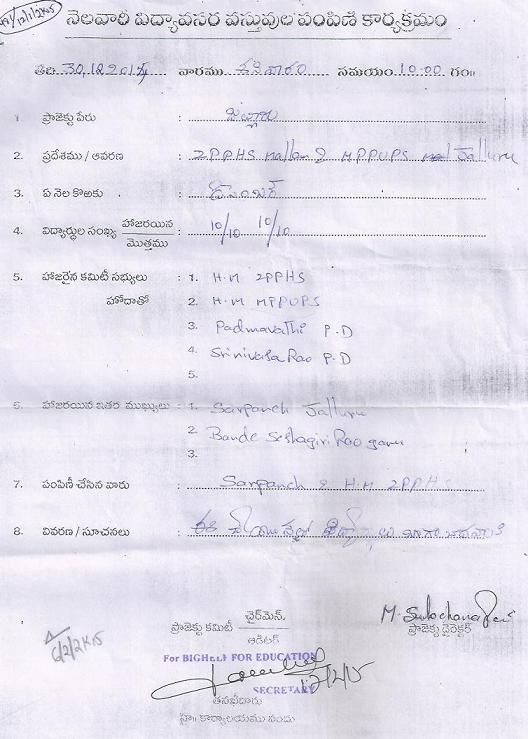 నెలవారి విద్యావసర వస్తువుల పంపిణీ కార్యక్రమం
తేది 30.12.2014 వారము సమయం 10:00 గం॥
1. ప్రాజెక్టు పేరు : జల్లూరు
2. ప్రదేశము / ఆవరణ : ZPPHS & MPPUPS Jalluru
3. ఏ నెల కొఱకు : డిసెంబర్
4. విద్యార్థుల సంఖ్య హాజరయిన / మొత్తము : 10/10 10/10
5. హాజరైన కమిటీ సభ్యులు : 1. H.M ZPPHS
హోదాతో 2. H.M MPPUPS
3. Padmavathi P.D
4. Srinivasa Rao P.D
5.
6. హాజరయిన ఇతర ముఖ్యులు : 1. Sarpanch Jalluru
2. Bande Seshagiri Rao garu
3.
7. పంపిణీ చేసిన వారు : Sarpanch & H.M ZPPHS
8. వివరణ / సూచనలు : ఈ
ప్రాజెక్టు కమిటీ ఛైర్మెన్.
ఆడిటర్
ప్రాజెక్టు డైరెక్టర్
6/2/2K15
For BIGHELP FOR EDUCATION
SECRETARY
తనఖీదారు
హె॥ కార్యాలయము నందు